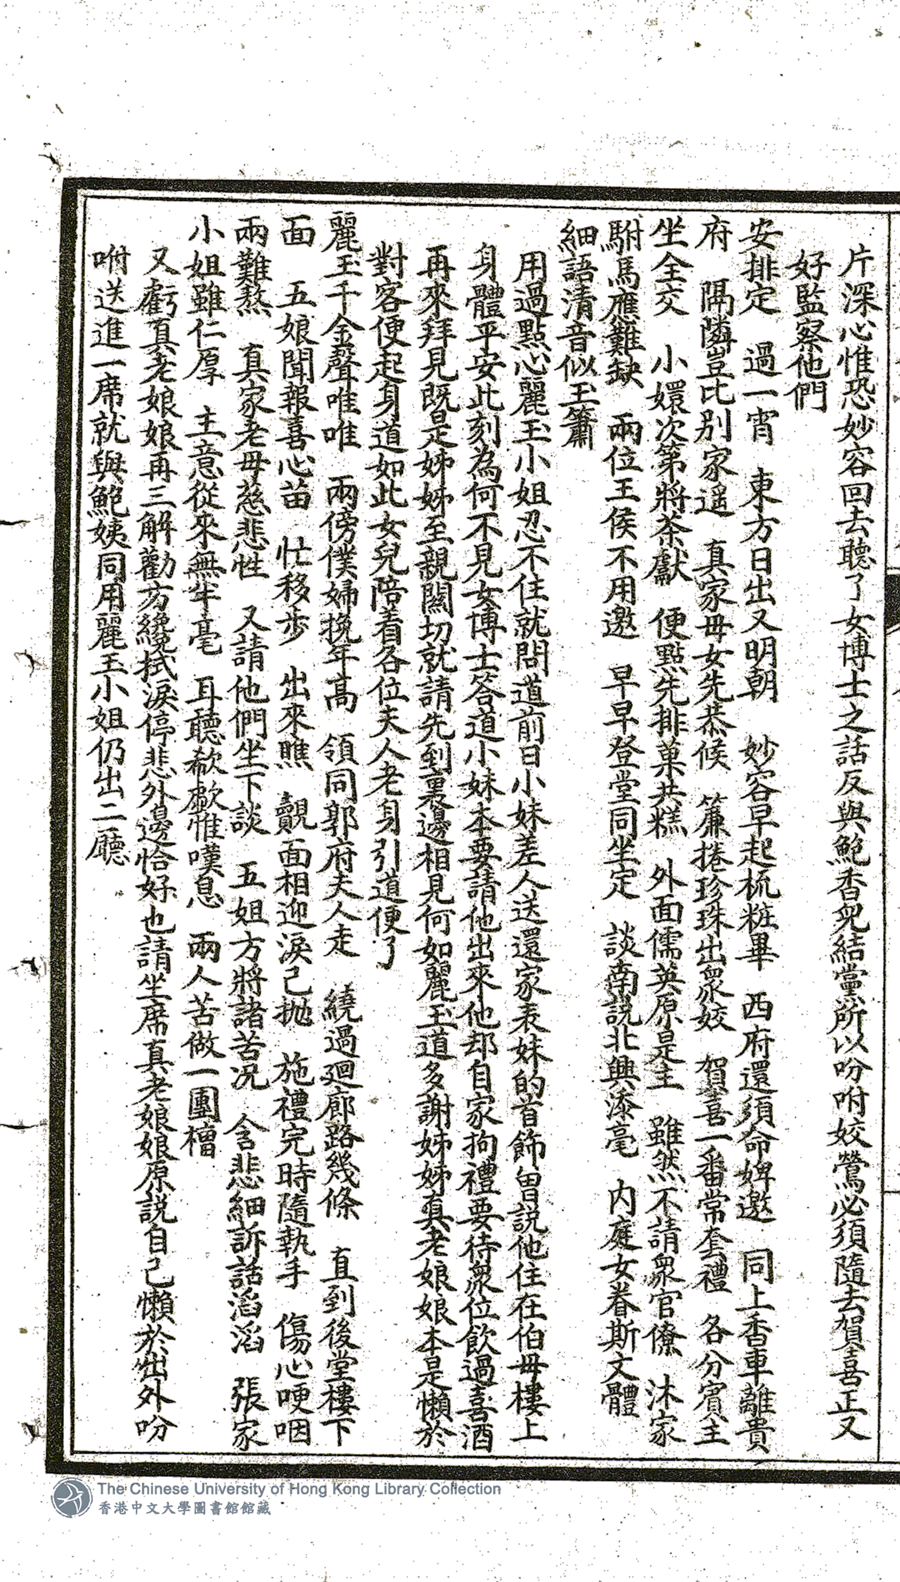 片深心惟恐妙容回去聽了女博士之話反與鮑香兒結黨所以吩咐姣鶯必須隨去賀喜正又
好監察他們
安排定　過一宵　東方日出又明朝　妙容早起梳粧畢　西府還須命婢邀　同上香車離貴
府　隔鄰豈比别家遥　真家母女先恭候　簾捲珍珠出衆姣　賀喜一番常套禮　各分賓主
坐全交　小嬛次第將茶獻　便點先排菓共糕　外面儒英原是主　雖然不請衆官僚　沐家
駙馬應難缺　兩位王侯不用邀　早早登堂同坐定　談南説北興添毫　内庭女眷斯文體
細語清音似玉簫
用過點心麗玉小姐忍不住就問道前日小妹差人送還家表妹的首飾曾説他住在伯母樓上
身體平安此刻為何不見女博士答道小妹本要請他出來他却自家拘禮要待衆位飲過喜酒
再來拜見既是姊姊至親關切就請先到裏邊相見何如麗玉道多謝姊姊真老娘娘本是懶於
對客便起身道如此女兒陪着各位夫人老身引道便了
麗玉千金聲唯唯　兩傍僕婦挽年高　領同郭府夫人走　繞過廻廊路幾條　直到後堂樓下
面　五娘聞報喜心苗　忙移步　出來瞧　覿面相迎淚已抛　施禮完時隨執手　傷心哽咽
兩難熬　真家老母慈悲性　又請他們坐下談　五姐方將諸苦况　含悲細訴話滔滔　張家
小姐雖仁厚　主意從來無牢毫　耳聽欷歔惟嘆息　兩人苦做一團糟
又虧真老娘娘再三解勸方纔拭淚停悲外邊恰好也請坐席真老娘娘原説自己懶於出外吩
咐送進一席就與鮑姨同用麗玉小姐仍出二廳
The Chinese University of Hong Kong Library Collection
香港中文大學圖書館館藏